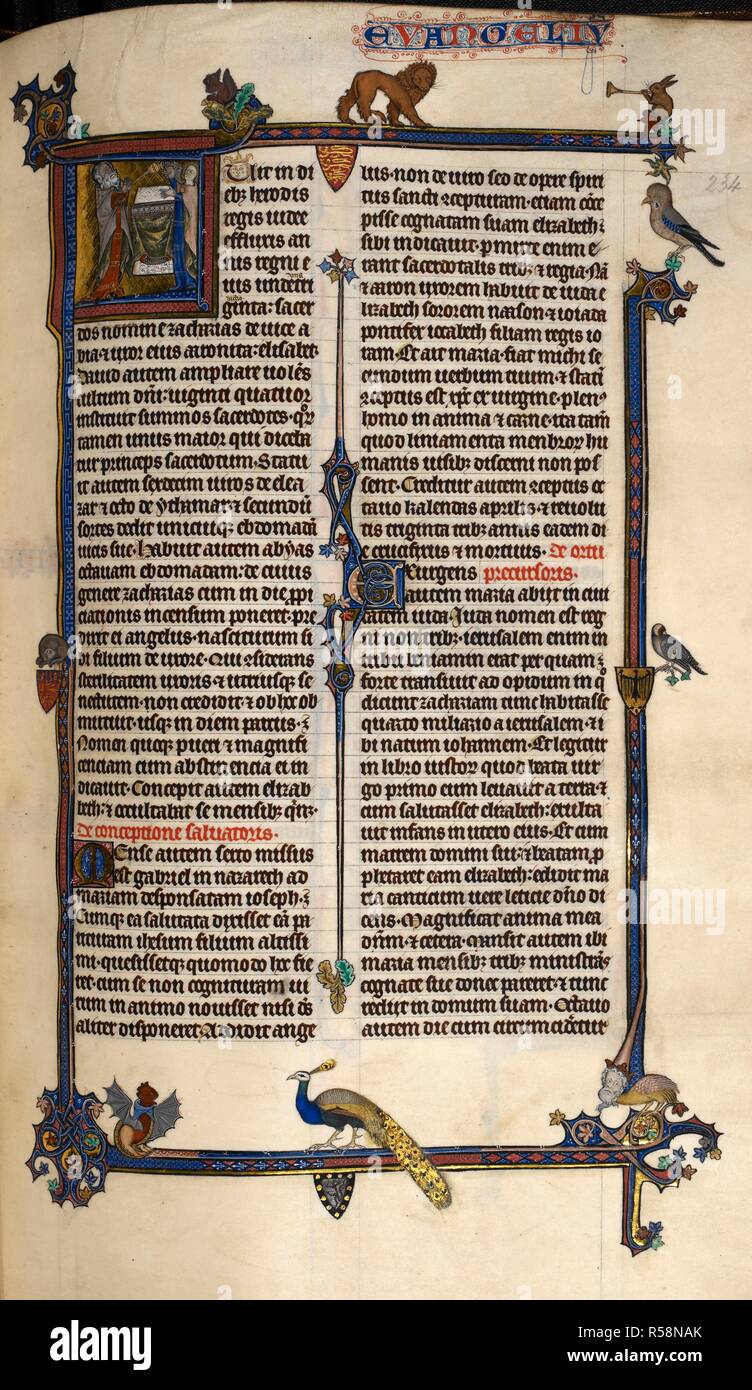 EVANGELIU
234
Uit in di
ebꝫ herodis
regis iudee
effluxis an
nis regni e
ius undetri
ginta: sacer
dos nomine zacharias de uice a
bia ⁊ uxor eius aronita: elisabet·
Dauid autem ampliare uolēs
cultum dn̄i: uiginti quatuor
instituit summos sacerdotes· qͦꝝ
tamen unus maior qui diceba
tur princeps sacerdotum· Statu
it autem sedecim uiros de elea
zar ⁊ octo de ythamar ⁊ secundū
sortes dedit unicuiqꝫ ebdomadā
uicis sue· Habuit autem abyas
octauam ebdomadam: de cuius
genere zacharias cum in die ꝓpi
ciationis incensum poneret· pre
dixit ei angelus· nasciturum si
bi filium de uxore· Qui ꝯsiderans
sterilitatem uxoris ⁊ utriusqꝫ se
nectutem· non credidit· ⁊ ob hoc ob
mutuit· usqꝫ in diem partus· ⁊
Nomen quoqꝫ pueri ⁊ magnifi
cenciam cum abstinencia ei in
dicauit· Concepit autem elizab
beth: ⁊ occultabat se mensibꝫ qͥnqꝫ·
de conceptione saluatoris·
Mense autem sexto missus
est gabriel in nazareth ad
mariam desponsatam ioseph· ⁊
Cumqꝫ ea salutata dixisset eā pa
rituram ihesum filium altissi
mi· quesissetqꝫ quomodo hoc fie
ret· cum se non cognituram ui
rum in animo nouisset nisi dꝰ
aliter disponeret· Addidit ange
lus· non de uiro sed de opere spiri
tus sancti ꝯcepturam· etiam ꝯce
pisse cognatam suam elizabeth ⁊
sibi indicauit· ꝑ mixte enim e
rant sacerdotalis tribꝫ ⁊ regia· Nā
⁊ aaron uxorem habuit de iuda e
lizabeth sororem naason· ⁊ ioiada
pontifex iocabeth filiam regis io
ram· Et ait maria· fiat michi se
cundum uerbum tuum· ⁊ statī
ꝯceptus est xp̄c ex uirgine· plenꝰ
homo in anima ⁊ carne· ita tamē
quod liniamenta menbroꝝ hu
manis uisibꝫ discerni non pos
sent· Creditur autem ꝯceptus oc
tauo kalendas aprilis· ⁊ reuolu
tis triginta tribꝫ annis eadem di
e crucifixus ⁊ mortuus· de ortu
Exurgens precursoris·
autem maria abiit in ciui
tatem iuda· Iuda nomen est reg
ni non tribꝫ· ierusalem enim in
tribu beniamin erat per quam ⁊
forte transiuit ad opidum in qͦ
dicunt zachariam tunc habitasse
quarto miliario a ierusalem· ⁊ i
bi natum iohannem· Et legitur
in libro iustoꝝ quod beata uir
go primo eum leuauit a terra· ⁊
cum salutasset elizabeth: exulta
uit infans in utero eius· Et cum
matrem domini sui· ⁊ beatam· ꝓ
phetaret eam elizabeth: edidit ma
ria canticum uere leticie dn̄o di
cens· Magnificat anima mea
dn̄m· ⁊ cetera· mansit autem ibi
maria mensibꝫ tribꝫ ministrās
cognate sue donec pareret· ⁊ tunc
rediit in domum suam· Octauo
autem die cum circumcideretur
alamy
Image ID: R58NAK
www.alamy.com